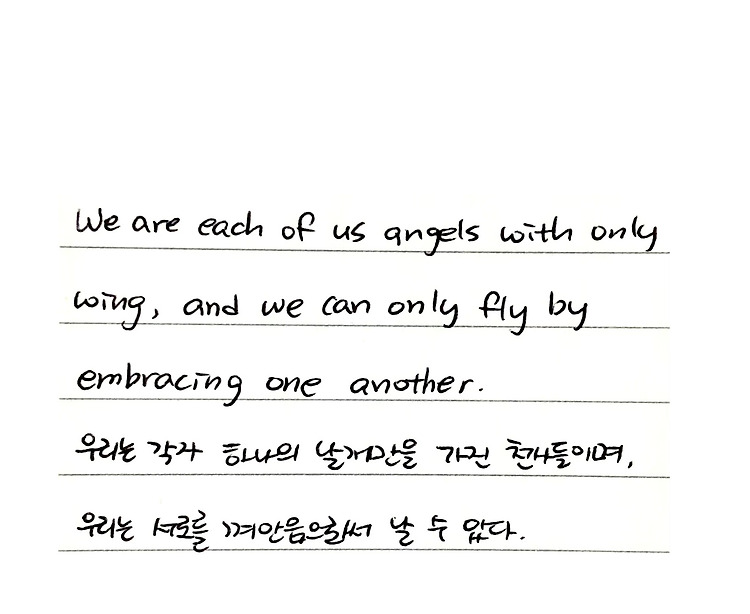 We are each of us angels with only
wing, and we can only fly by
embracing one another.
우리는 각자 하나의 날개만을 가진 천사들이며,
우리는 서로를 껴안음으로써 날 수 있다.